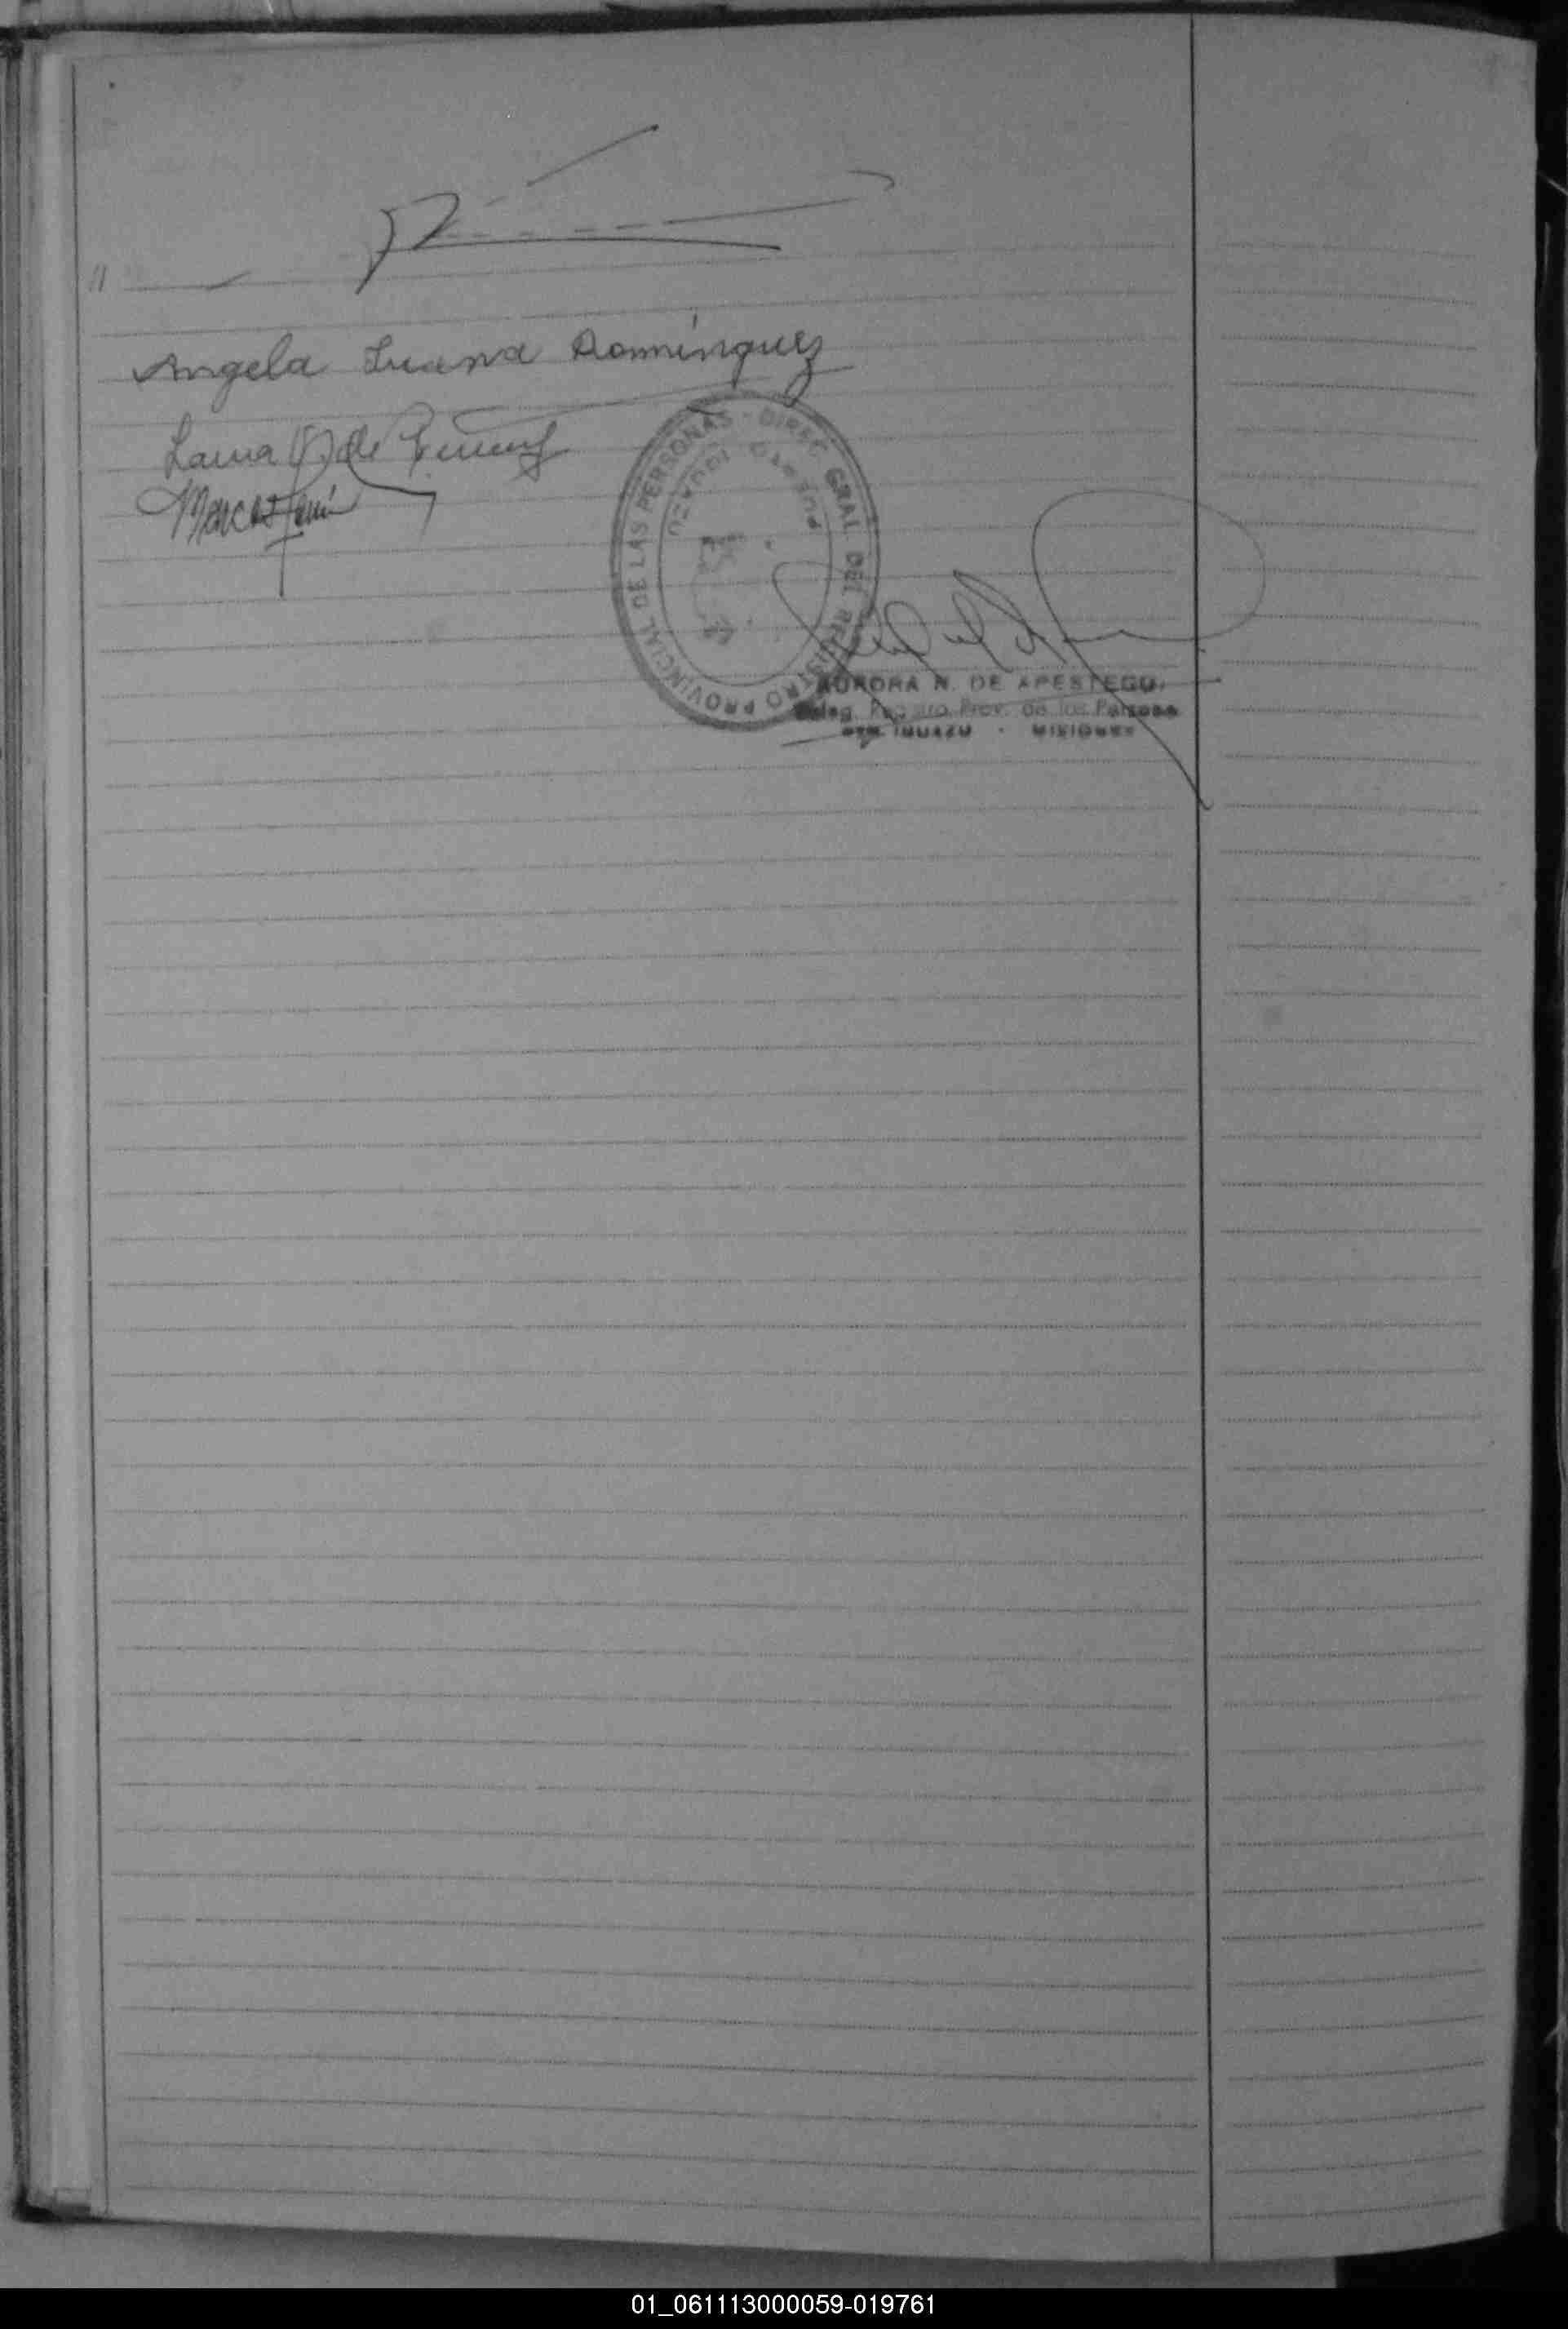 "
Angela Juana Dominguez
Laura de
Marcos
PROVINCIAL DE LAS PERSONAS - DIREC. GRAL. DEL REGISTRO
PUERTO IGUAZU
AURORA N. DE APESTEGUI
Deleg. Registro Prov. de las Personas
PTO. IGUAZU - MISIONES
01_061113000059-019761